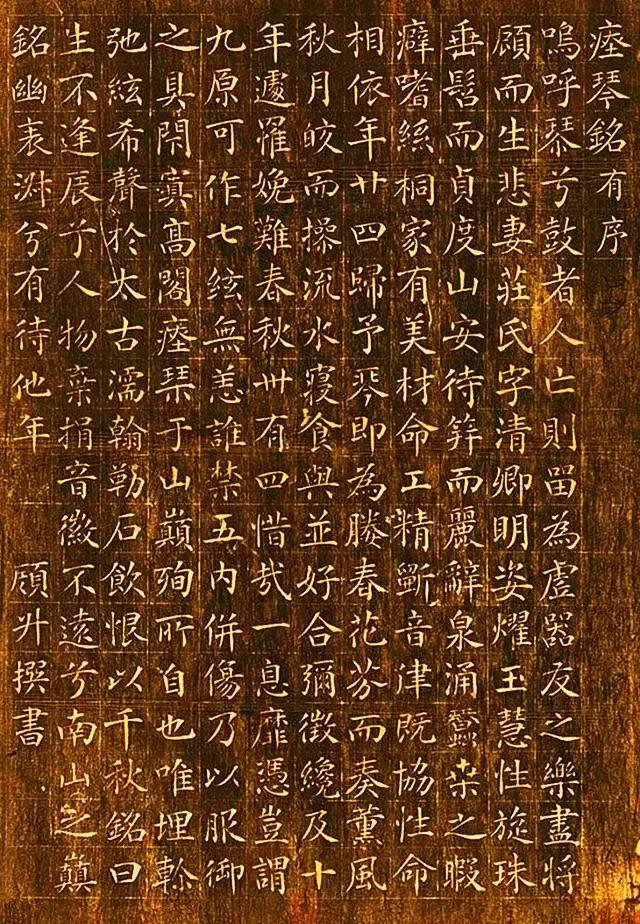 瘞琴銘有序
嗚呼琴兮鼓者人亡則畱為虛器友之樂盡將
頋而生悲妻莊氏字清卿明姿燿玉慧性旋珠
垂髫而貞度山安待筓而麗辭泉涌蠶桒之暇
癖嗜絲桐家有美材命工精斲音律既協性命
相依年廿四歸予琴即為勝春花芬而奏薰風
秋月皎而操流水寢食與並好合彌徵纔及十
年遽罹娩難春秋卅有四惜哉一息靡憑豈謂
九原可作七絃無恙誰禁五內併傷乃以服御
之具閇寘高閣瘞琹于山巔殉所自也唯埋軫
弛絃希聲於太古濡翰勒石飲恨以千秋銘曰
生不逢辰兮人物棄捐音徽不遠兮南山之巔
銘幽衷兮有待他年 頋升撰書